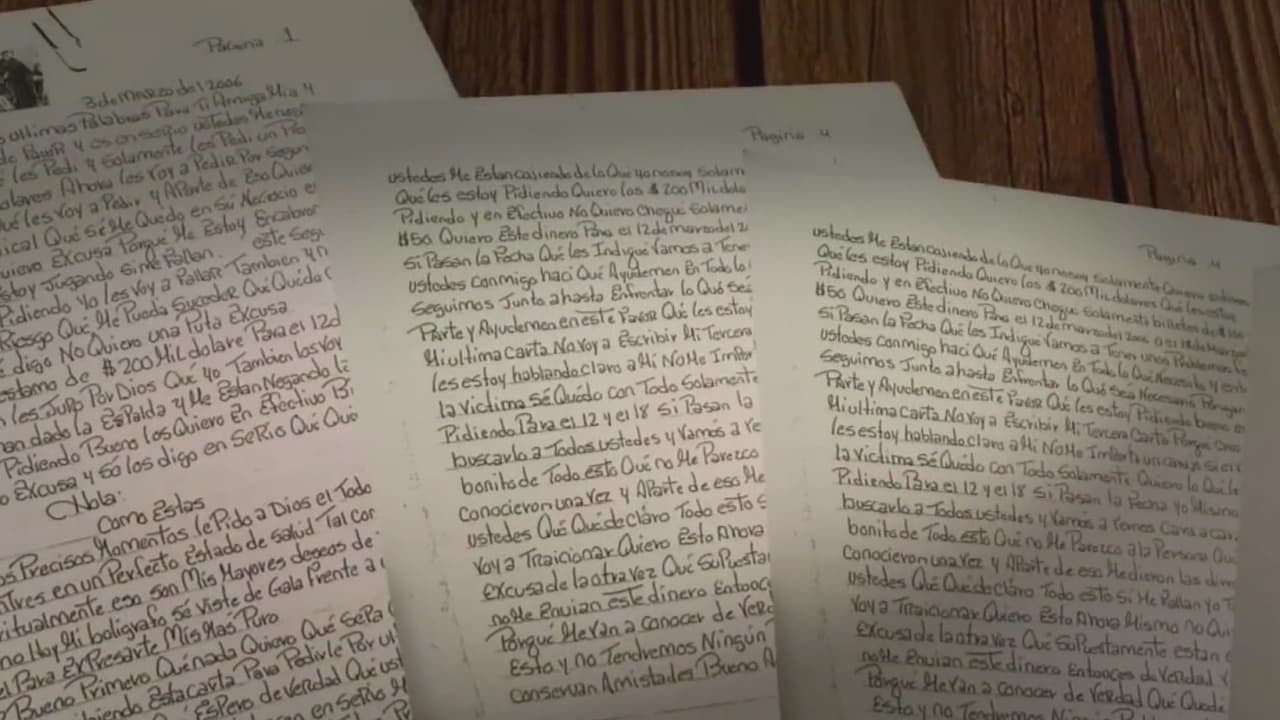 Pagina 1
3 de MARZO del 2006
Ultimas Palabras Para Ti Amiga Mia y
de Favor y os en serio ustedes Me
les Pedi y Solamente les Pedi un
Ahora les voy a Pedir Por
Qué les voy a Pedir y Aparte de Eso Quier
Qué Sé Me Quedo en Su Negocio e
Quiero Excusa Porqué Me Estoy
Estoy Jugando Si Me Fallan. este
Pidiendo Yo les Voy a Fallar Tambien y
Riesgo Qué Me Pueda Suceder Qué Quida
digo No Quiero una Puta Excusa
de $200 Mil dolare Para el 12 d
les Juro Por Dios Qué yo Tambien los voy
han dado la Espalda y Me Estan Negando
Pidiendo Bueno los Quiero En Efectivo
Excusa y Sé los digo en Serio Qué
Nota:
Como Estas
Precisos Momentos le Pido a Dios el Todo
en un Perfecto Estado de Salud Tal
eso son Mis Mayores deseos de
Hoy Mi boligrafo Sé Viste de Gala Frente a
Para Expresarte Mis Más Puro
Bueno Primero Qué nada Quiero Qué Sepa
Esta carta Para Pedirle Por
Espero de Verdad Qué
en serio
Pagina 4
ustedes Me Estan casiendo de lo Qué yo no soy Solam
Qué les estoy Pidiendo Quiero los $200 Mil dola
Pidiendo y en Efectivo No Quiero Cheque Solame
$50 Quiero Este dinero Para el 12 de marzo del 2
Si Pasan la Fecha Qué les Indiqué Vamos a Tene
ustedes conmigo haci Qué Ayudemen En Todo lo
Seguimos Junto a hasta Enfrentar lo Qué Sea
Parte y Ayudemen en este Favor Qué les estoy
Mi ultima Carta No voy a Escribir Mi Tercera
les estoy hablando claro a Mi No Me Impor
la victima Sé Quédo con Todo Solamente
Pidiendo Para el 12 y el 18 Si Pasan la
buscarlo a Todos ustedes y Vamos a Ve
bonita de Todo esto Qué no Me Parezco
Conocieron una Vez y Aparte de eso Me
ustedes Qué Quéde claro Todo esto S
Voy a Traicionar Quiero Esto Ahora
Excusa de la otra Vez Qué Supuesta
no Me Envian este dinero Entonc
Porqué Me Van a Conocer de Verd
Esto y no Tendremos Ningún
Conservan Amistades Bueno A
Pagina 4
ustedes Me Estan casiendo de lo Qué yo no soy Solamente Quiero
Qué les estoy Pidiendo Quiero los $200 Mil dolares Qué les estoy
Pidiendo y en Efectivo No Quiero Cheque Solamente billetes de $100
$50 Quiero Este dinero Para el 12 de marzo del 2006 o el 18 de Marzo
Si Pasan la Fecha Qué les Indiqué Vamos a Tener unos Problemas
ustedes conmigo haci Qué Ayudemen En Todo lo Qué Necesito y
Seguimos Junto a hasta Enfrentar lo Qué Sea Necesario
Parte y Ayudemen en este Favor Qué les estoy Pidiendo bueno
Mi ultima Carta No voy a Escribir Mi Tercera Carta Porqué
les estoy hablando claro a Mi No Me Importa un carajo si
la victima Sé Quédo con Todo Solamente Quiero lo Qué le
Pidiendo Para el 12 y el 18 Si Pasan la Fecha yo Mismo
buscarlo a Todos ustedes y Vamos a Vernos Cara a car
bonita de Todo esto Qué no Me Parezco a la Persona Qu
Conocieron una Vez y Aparte de eso Me dieron las
ustedes Qué Quéde claro Todo esto Si Me Fallan Yo T
Voy a Traicionar Quiero Esto Ahora Mismo no Qui
Excusa de la otra Vez Qué Supuestamente estan
no Me Envian este dinero Entonces de Verdad
Porqué Me Van a Conocer de Verdad Qué Quede
Esto y no Tendremos Ningún